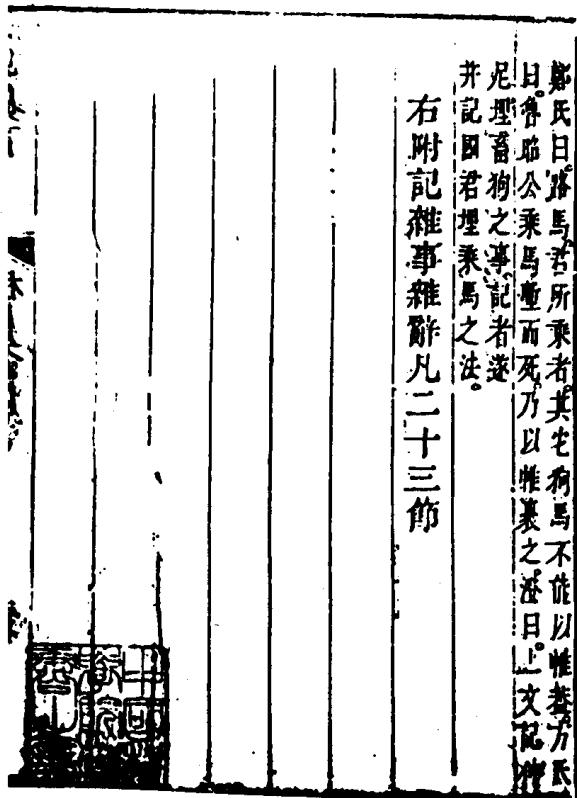 鄭氏曰路馬君所乘者其它狗馬不能以帷蓋方氏
曰魯昭公乘馬塹而死乃以帷裹之澄曰上文記仲
尼埋畜狗之事記者遂
并記國君埋乘馬之法
右附記雜事雜辭凡二十三節